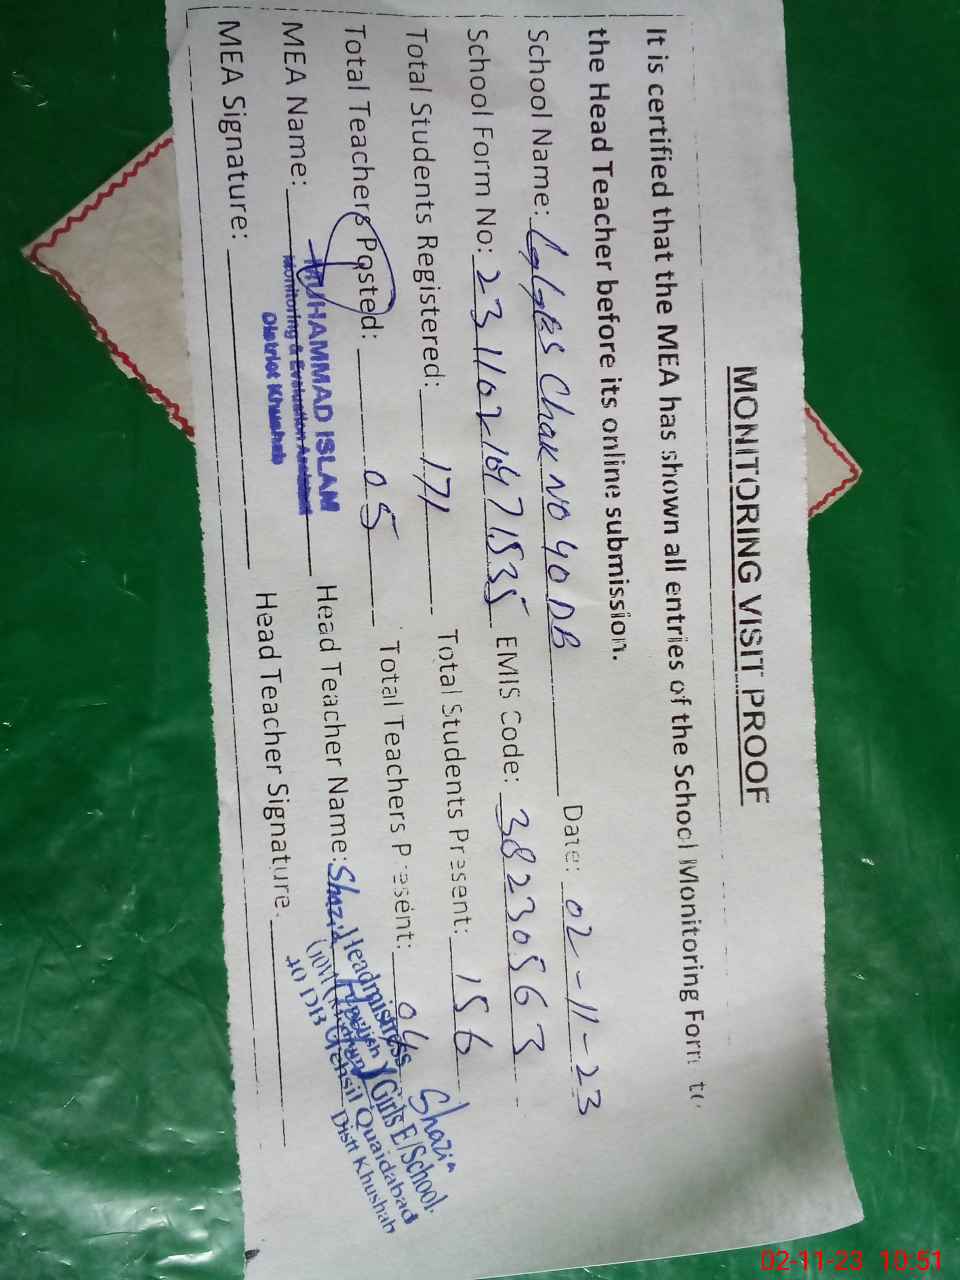 MONITORING VISIT PROOF
It is certified that the MEA has shown all entries of the School Monitoring Form to
the Head Teacher before its online submission.
School Name: GGES Chak No 40 DB Date: 02-11-23
School Form No: EMIS Code: 38230563
Total Students Registered: 171 Total Students Present: 156
Total Teachers Posted: 05 Total Teachers Present: 04
MEA Name: MUHAMMAD ISLAM Head Teacher Name: Shazia
Monitoring & Evaluation Assistant
District Khushab
MEA Signature: Head Teacher Signature.
Shazia
Headmistress
Girls E/School
40 DB Tehsil Quaidabad
Distt Khushab
02-11-23 10:51